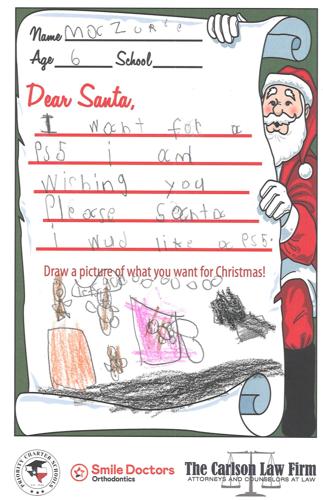 Name
Age 6 School
Dear Santa,
I want for a
PS5 i am
wishing you
Please Santa
i wud like a PS5.
Draw a picture of what you want for Christmas!
PRIORITY CHARTER SCHOOLS
Smile Doctors
Orthodontics
The Carlson Law Firm
ATTORNEYS AND COUNSELORS AT LAW